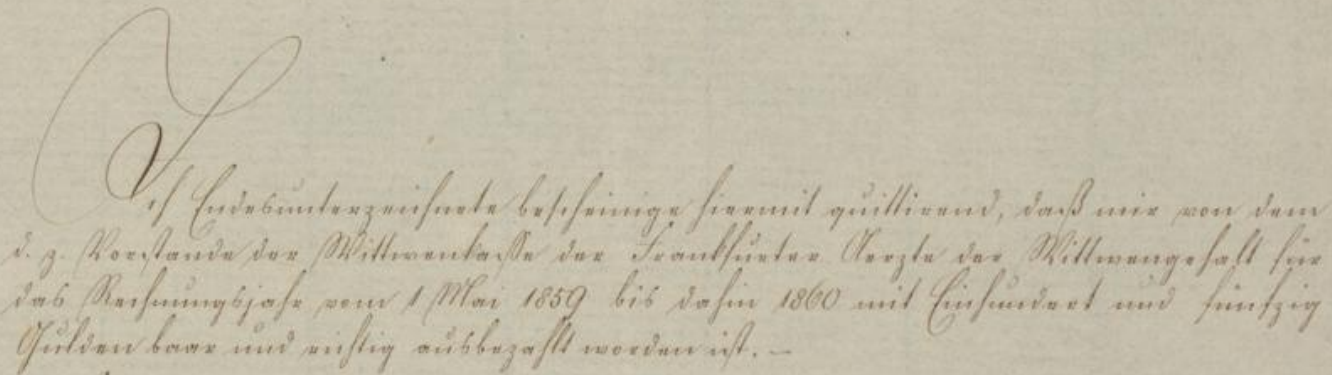 Ich Endesunterzeichnete bescheinige hiermit quittirend, daß mir von dem
d. z. Vorstande der Wittwenkasse der Frankfurter Aerzte der Wittwengehalt für
das Rechnungsjahr vom 1 Mai 1859 bis dahin 1860 mit Einhundert und fünfzig
Gulden baar und richtig ausbezahlt worden ist. –